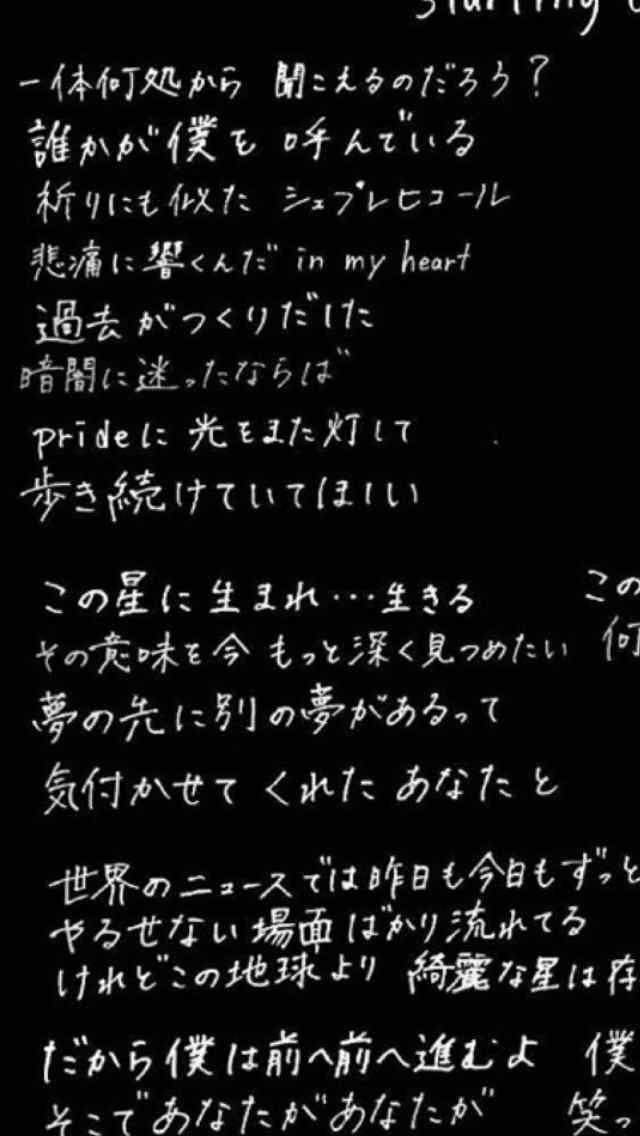 一体何処から 聞こえるのだろう?
誰かが僕を 呼んでいる
祈りにも似た シュプレヒコール
悲痛に響くんだ in my heart
過去がつくりだした
暗闇に迷ったならば
prideに 光をまた灯して
歩き続けていてほしい
この星に生まれ…生きる
その意味を今 もっと深く見つめたい
夢の先に別の夢があるって
気付かせてくれた あなたと
この
何
世界のニュースでは昨日も今日もずっと
やるせない場面ばかり流れてる
けれどこの地球より 綺麗な星は存
だから僕は前へ前へ進むよ 僕
そこであなたがあなたが 笑っ